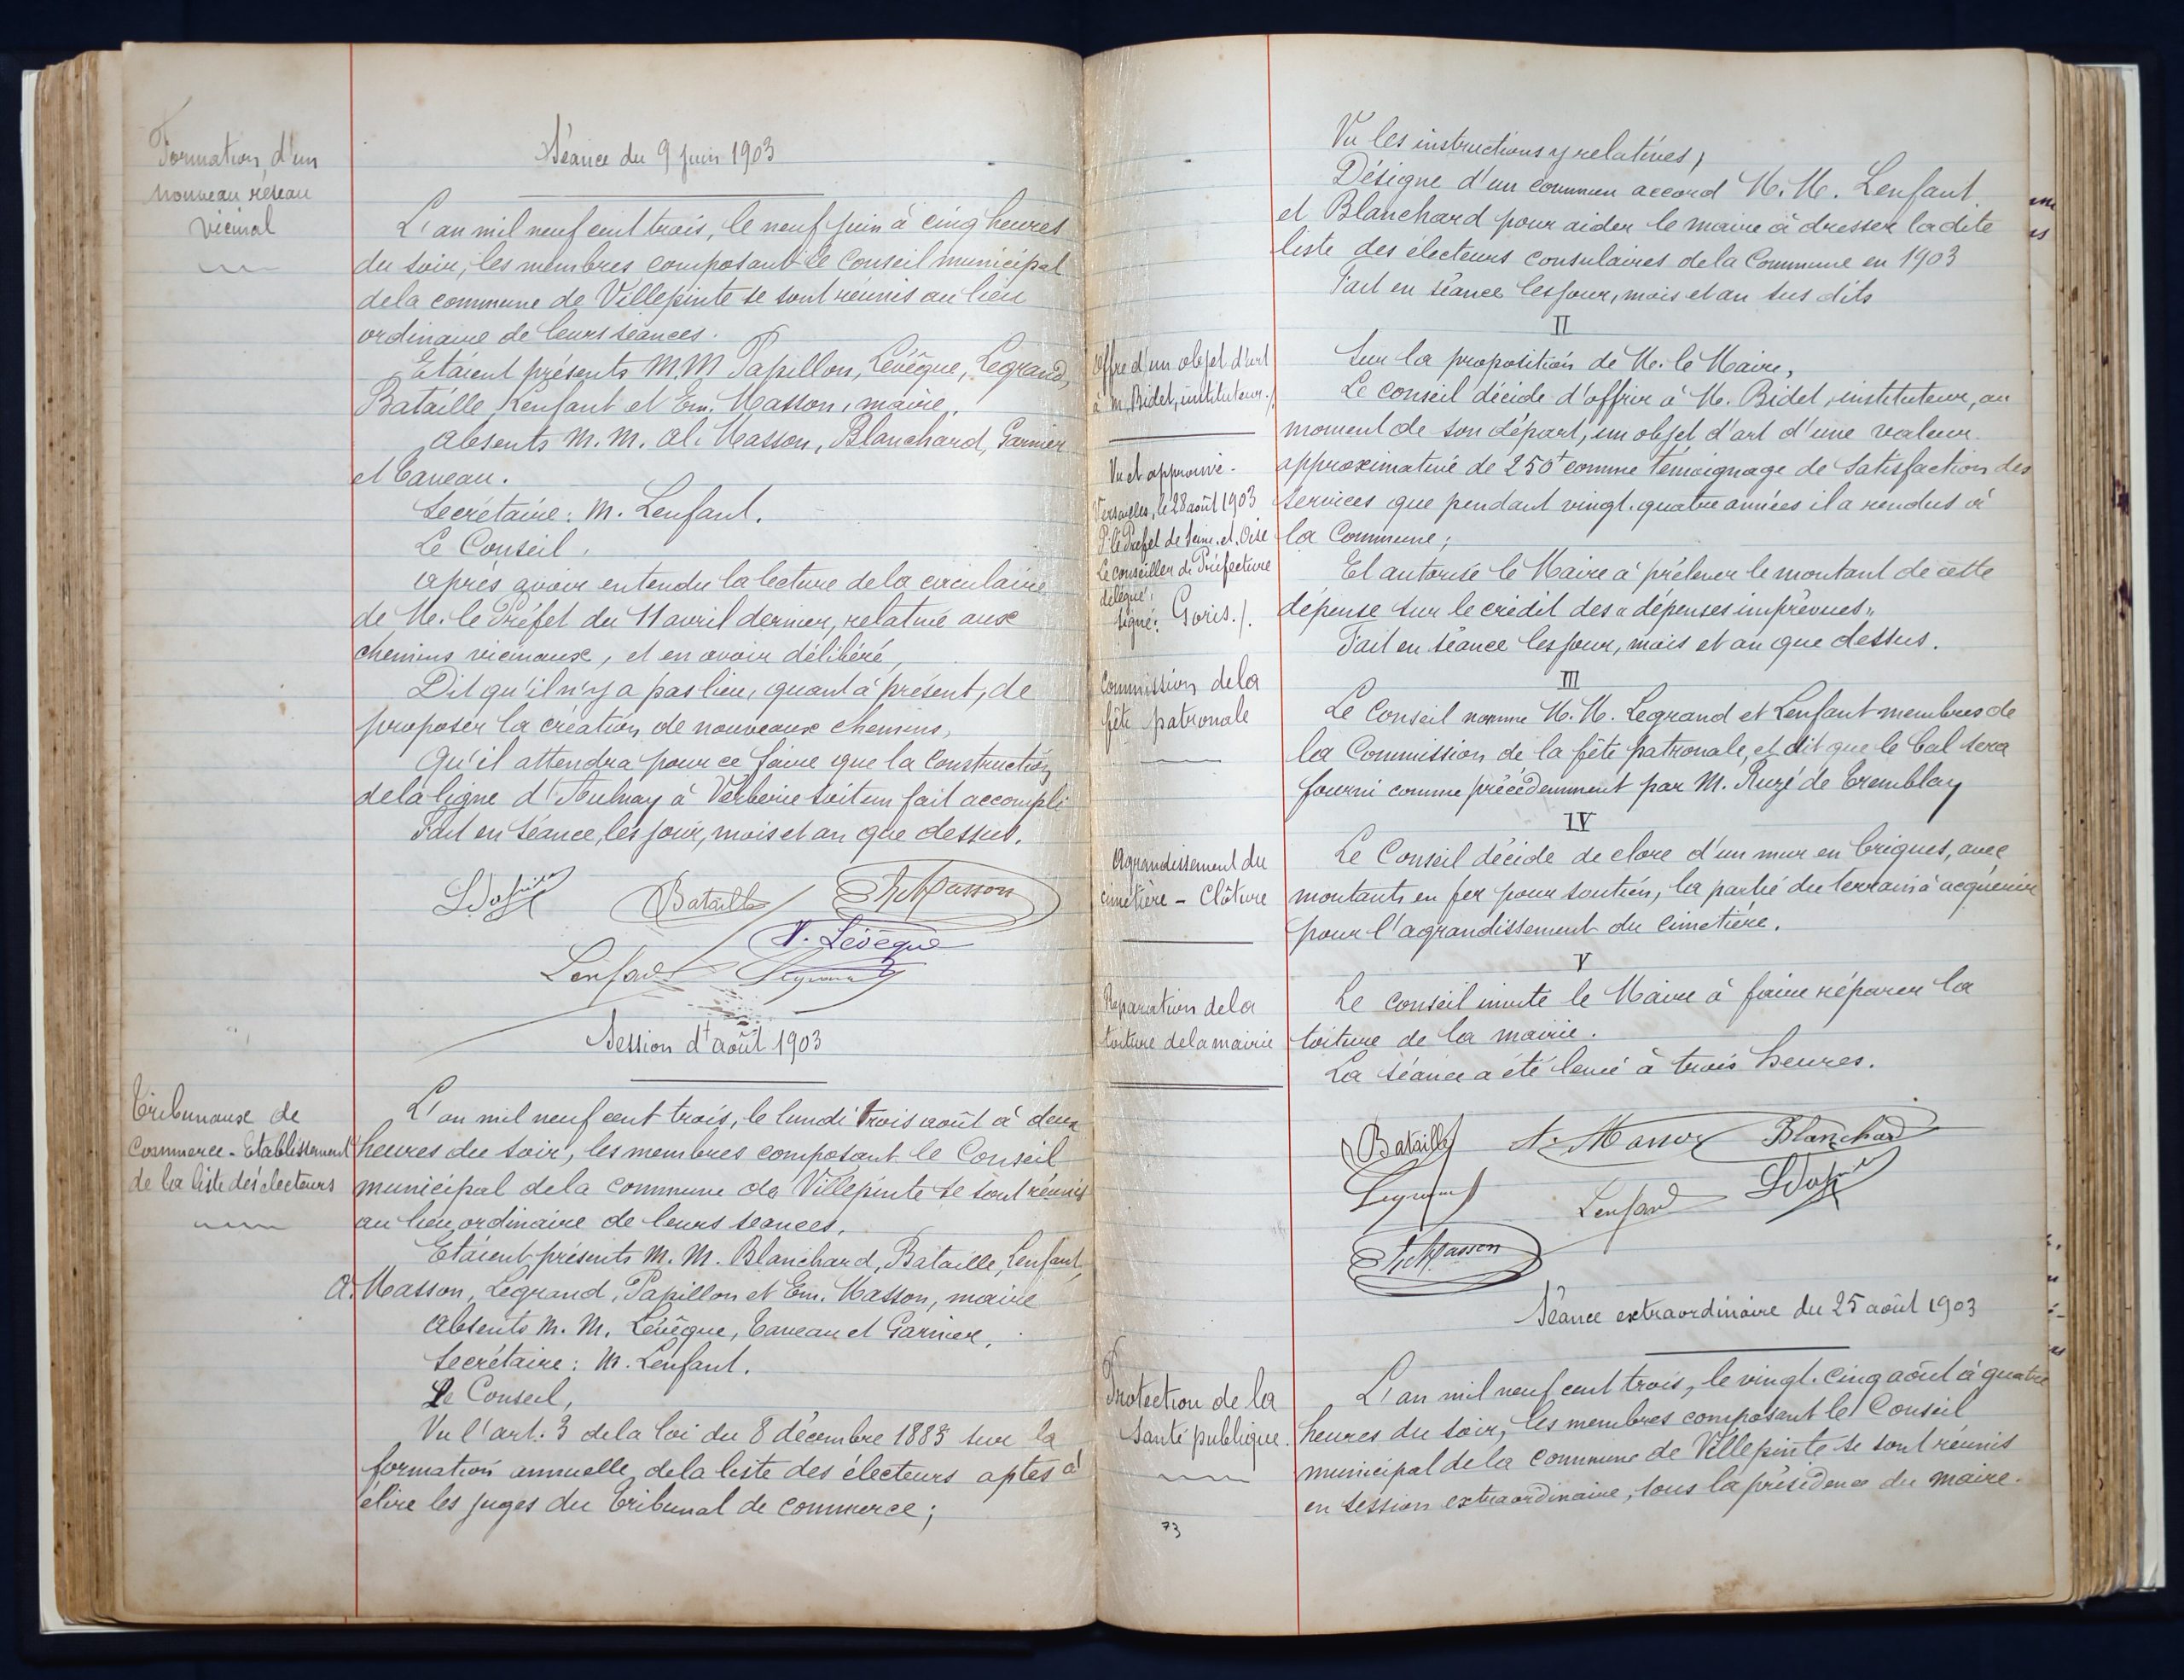 Formation d'un
nouveau réseau
vicinal
Séance du 9 juin 1903
L'an mil neuf cent trois, le neuf juin à cinq heures
du soir, les membres composant le Conseil municipal
de la commune de Villepinte se sont réunis au lieu
ordinaire de leurs séances.
Etaient présents M.M Papillon, Lévêque, Legrand,
Bataille, Lenfant et Em. Masson, maire.
Absents M. M. Al. Masson, Blanchard, Garnier
et Taveau.
Secrétaire : M. Lenfant.
Le Conseil,
Après avoir entendu la lecture de la circulaire
de M. le Préfet du 11 avril dernier, relative aux
chemins vicinaux, et en avoir délibéré,
Dit qu'il n'y a pas lieu, quant à présent, de
proposer la création de nouveaux chemins,
Qu'il attendra pour ce faire que la construction
de la ligne d'Aulnay à Verberie soit un fait accompli
Fait en séance, les jour, mois et an que dessus.
Bataille Em Masson
V. Lévêque
Lenfant Legrand
Session d'août 1903
Tribunaux de
Commerce - Etablissement
de la liste des électeurs
L'an mil neuf cent trois, le lundi trois août à deux
heures du soir, les membres composant le Conseil
municipal de la commune de Villepinte se sont réunis
au lieu ordinaire de leurs séances.
Etaient présents M. M. Blanchard, Bataille, Lenfant,
A. Masson, Legrand, Papillon et Em. Masson, maire
Absents M. M. Lévêque, Taveau et Garnier.
Secrétaire : M. Lenfant.
Le Conseil,
Vu l'art. 3 de la loi du 8 décembre 1883 sur la
formation annuelle de la liste des électeurs aptes à
élire les juges du Tribunal de commerce ;
Vu les instructions y relatives ;
Désigne d'un commun accord M. M. Lenfant
et Blanchard pour aider le maire à dresser la dite
liste des électeurs consulaires de la Commune en 1903
Fait en séance les jour, mois et an sus dits
II
Offre d'un objet d'art
à M. Bidet, instituteur./.
Sur la proposition de M. le Maire,
Le conseil décide d'offrir à M. Bidet, instituteur, au
moment de son départ, un objet d'art d'une valeur
approximative de 250f comme témoignage de satisfaction des
services que pendant vingt-quatre années il a rendus à
la Commune ;
Et autorise le Maire à prélever le montant de cette
dépense sur le crédit des « dépenses imprévues »
Fait en séance les jour, mois et an que dessus.
Vu et approuvé -
Versailles, le 28 août 1903
P. le Préfet de Seine-et-Oise
Le conseiller de Préfecture
délégué,
Signé : Goris./.
III
Commission de la
fête patronale
Le Conseil nomme M. M. Legrand et Lenfant membres de
la Commission de la fête patronale, et dit que le bal sera
fourni comme précédemment par M. Ruzé de Tremblay
IV
Agrandissement du
cimetière - Clôture
Le Conseil décide de clore d'un mur en briques, avec
montants en fer pour soutien, la partie du terrain à acquérir
pour l'agrandissement du cimetière.
V
Réparation de la
toiture de la mairie
Le conseil invite le Maire à faire réparer la
toiture de la mairie.
La séance a été levée à trois heures.
Bataille A. Masson Blanchard
Legrand Lenfant
Em Masson
Séance extraordinaire du 25 août 1903
Protection de la
Santé publique.
L'an mil neuf cent trois, le vingt-cinq août à quatre
heures du soir, les membres composant le Conseil
municipal de la commune de Villepinte se sont réunis
en session extraordinaire, sous la présidence du maire.
73